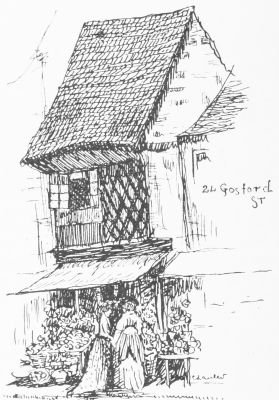 24 Gosford
ST